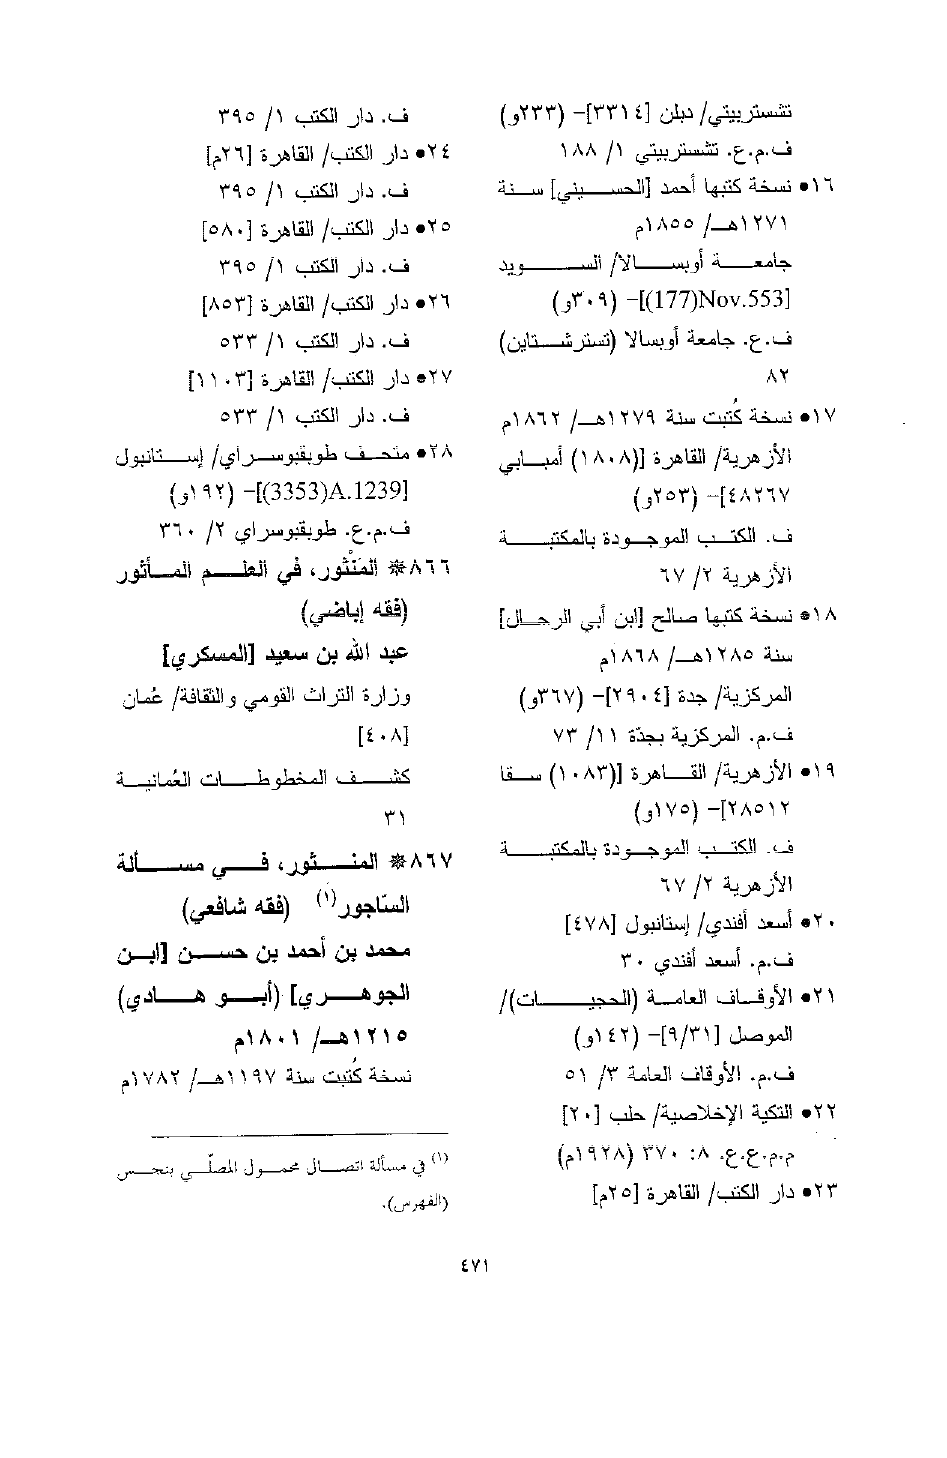 تشستربيتي/ دبلن [٣٣١٤]- (٢٣٣و)
ف.م.ع. تشستربيتي ١/ ١٨٨
١٦• نسخة كتبها أحمد [الحسيني] سنة
١٢٧١هـ/ ١٨٥٥م
جامعة أوبسالا/ السويد
[Nov.553(177)]- (٣٠٩و)
ف.ع. جامعة أوبسالا (تسترشتاين)
٨٢
١٧• نسخة كُتبت سنة ١٢٧٩هـ/ ١٨٦٢م
الأزهرية/ القاهرة [(١٨٠٨) أمبابي
٤٨٢٦٧]- (٢٥٣و)
ف. الكتب الموجودة بالمكتبة
الأزهرية ٢/ ٦٧
١٨• نسخة كتبها صالح [ابن أبي الرجال]
سنة ١٢٨٥هـ/ ١٨٦٨م
المركزية/ جدة [٢٩٠٤]- (٣٦٧و)
ف.م. المركزية بجدّة ١١/ ٧٣
١٩• الأزهرية/ القاهرة [(١٠٨٣) سقا
٢٨٥١٢]- (١٧٥و)
ف. الكتب الموجودة بالمكتبة
الأزهرية ٢/ ٦٧
٢٠• أسعد أفندي/ إستانبول [٤٧٨]
ف.م. أسعد أفندي ٣٠
٢١• الأوقاف العامة (الحجيات)/
الموصل [٩/٣١]- (١٤٢و)
ف.م. الأوقاف العامة ٣/ ٥١
٢٢• التكية الإخلاصية/ حلب [٢٠]
م.م.ع.ع. ٨: ٣٧٠ (١٩٢٨م)
٢٣• دار الكتب/ القاهرة [٢٥م]
ف. دار الكتب ١/ ٣٩٥
٢٤• دار الكتب/ القاهرة [٢٦م]
ف. دار الكتب ١/ ٣٩٥
٢٥• دار الكتب/ القاهرة [٥٨٠]
ف. دار الكتب ١/ ٣٩٥
٢٦• دار الكتب/ القاهرة [٨٥٣]
ف. دار الكتب ١/ ٥٣٣
٢٧• دار الكتب/ القاهرة [١١٠٣]
ف. دار الكتب ١/ ٥٣٣
٢٨• متحف طوبقبوسراي/ إستانبول
[A.1239(3353)]- (١٩٢و)
ف.م.ع. طوبقبوسراي ٢/ ٣٦٠
٨٦٦* المَنْثور، في العلم المأثور
(فقه إباضي)
عبد الله بن سعيد [المسكري]
وزارة التراث القومي والثقافة/ عُمان
[٤٠٨]
كشف المخطوطات العُمانية
٣١
٨٦٧* المنثور، في مسألة
السّاجور(١) (فقه شافعي)
محمد بن أحمد بن حسن [ابن
الجوهري] (أبو هادي)
١٢١٥هـ/ ١٨٠١م
نسخة كُتبت سنة ١١٩٧هـ/ ١٧٨٢م
(١) في مسألة اتصال محمول المصلّي بنجس
(الفهرس).
٤٧١